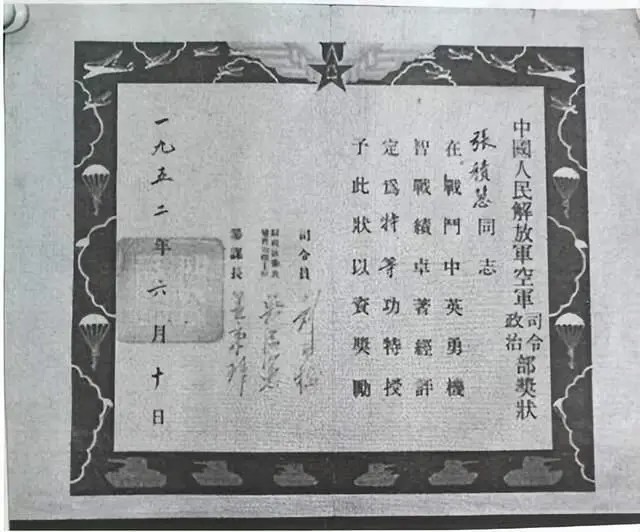 中國人民解放軍空軍司令政治部獎狀
張積慧同志
在戰鬥中英勇機
智戰績卓著經評
定爲特等功特授
予此狀以資獎勵
司令員
參謀長
一九五二年六月十日